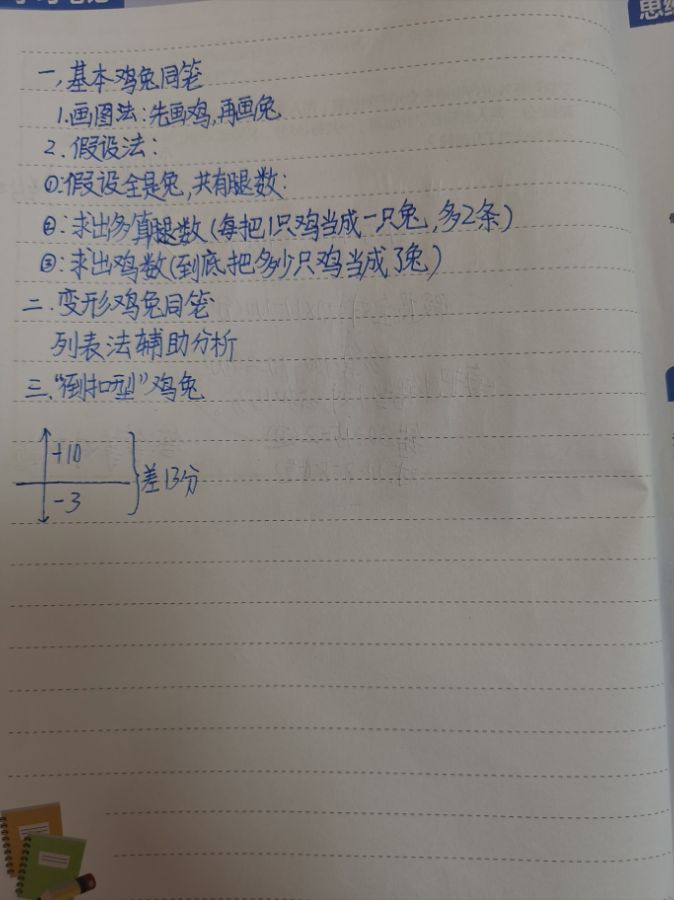 一,基本鸡兔同笼
1.画图法:先画鸡,再画兔
2.假设法:
①:假设全是兔,共有腿数:
②:求出多算腿数(每把1只鸡当成一只兔,多2条)
③:求出鸡数(到底把多少只鸡当成了兔)
二.变形鸡兔同笼
列表法辅助分析
三."倒扣型"鸡兔
+10
-3
差13分